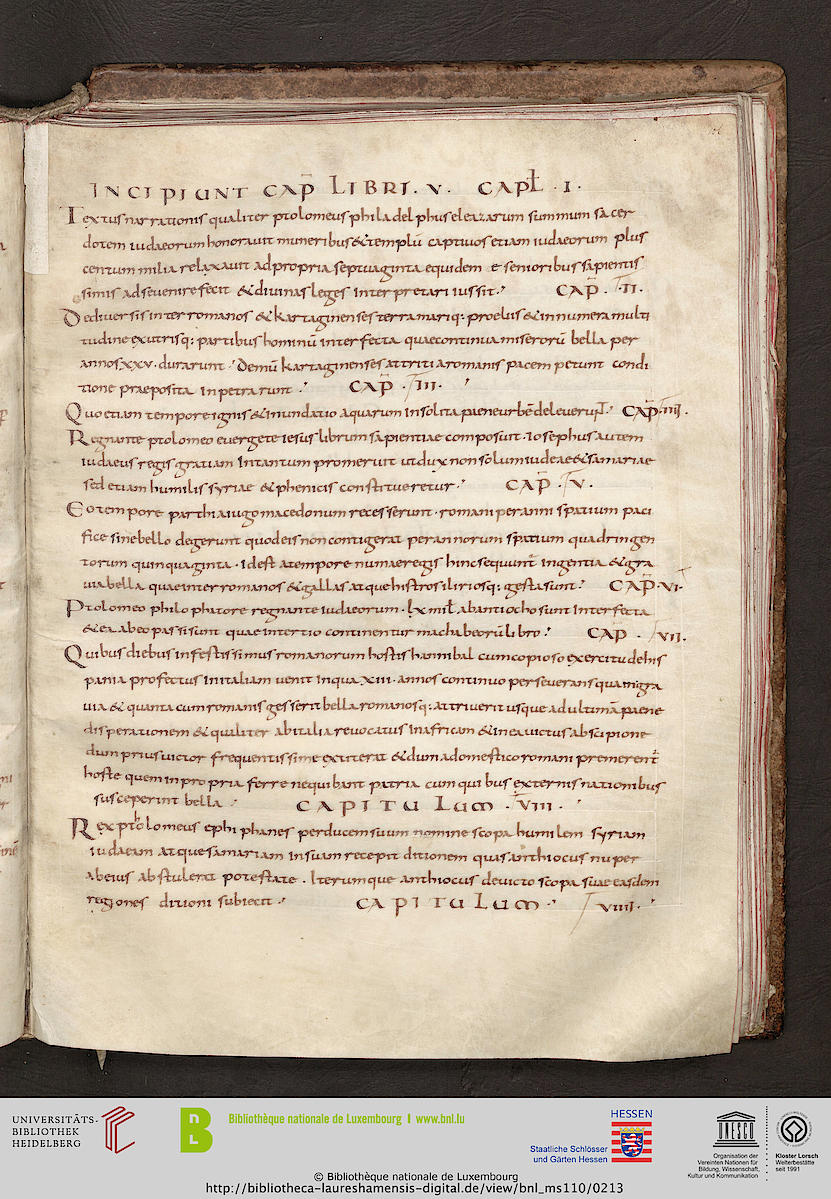 INCIPIUNT CAP̄ LIBRI. V. CAPŁ. I.
Textus narrationis qualiter ptolomeus philadelphus eleazarum summum sacer
dotem iudaeorum honorauit muneribus & templū captiuos etiam iudaeorum plus
centum milia relaxauit ad propria septuaginta equidem e senioribus sapientis
simis ad se uenire fecit & diuinas leges interpretari iussit. CAP̄. II.
De diuersis inter romanos & kartaginenses terra mariq: proeliis & innumera multi
tudine ex utrisq: partibus hominū interfecta quae continua miserorū bella per
annos xxv. durarunt. Demū kartaginenses attriti a romanis pacem petunt condi
tione praeposita inpetrarunt. CAP̄. III.
Quo etiam tempore ignis & inundatio aquarum insolita paene urbē deleuerunt. CAP̄. IIII.
Regnante ptolomeo euergete iesus librum sapientiae composuit. Iosephus autem
iudaeus regis gratiam intantum promeruit ut dux non solum iudeae & samariae
sed etiam humilis syriae & phenicis constitueretur. CAP̄. V.
Eo tempore parthi a iugo macedonum recesserunt. romani per anni spatium paci
fice sine bello degerunt quod eis non contigerat per annorum spatium quadringen
torum quinquaginta. id est a tempore numae regis hinc sequunt̄ ingentia & gra
uia bella quae inter romanos & gallas atque histros iliriosq: gesta sunt. CAP̄. VI.
Ptolomeo philophatore regnante iudaeorum. lx mił. ab antiocho sunt interfecta
& ea ab eo passi sunt quae in tertio continentur machabeorū libro. CAP̄. VII.
Quibus diebus infestissimus romanorum hostis hannibal cum copioso exercitu de his
pania profectus in italiam uenit in qua. XIII. annos continuo perseuerans quam gra
uia & quanta cum romanis gesserit bella romanosq: attriuerit usque ad ultimā paene
disperationem & qualiter ab italia reuocatus in africam & in ea uictus ab scipione
dum prius uictor frequentissime extiterat & dum a domestico romani premerent̄
hoste quem in propria ferre nequibant patria cum quibus externis nationibus
susceperint bella. CAPITULUM. VIII.
Rex ptolomeus ephiphanes per ducem suum nomine scopa humilem syriam
iudaeam atque samariam in suam recepit ditionem quis anthiocus nuper
ab eius abstulerat potestate. Iterumque anthiocus deuicto scopa suae easdem
regiones ditioni subiecit. CAPITULUM. VIIII.
UNIVERSITÄTS-
BIBLIOTHEK
HEIDELBERG
Bibliothèque nationale de Luxembourg I www.bnl.lu
HESSEN
Staatliche Schlösser
und Gärten Hessen
UNESCO
Organisation der
Vereinten Nationen für
Bildung, Wissenschaft,
Kultur und Kommunikation
Kloster Lorsch
Welterbestätte
seit 1991
© Bibliothèque nationale de Luxembourg
http://bibliotheca-laureshamensis-digital.de/view/bnl_ms110/0213